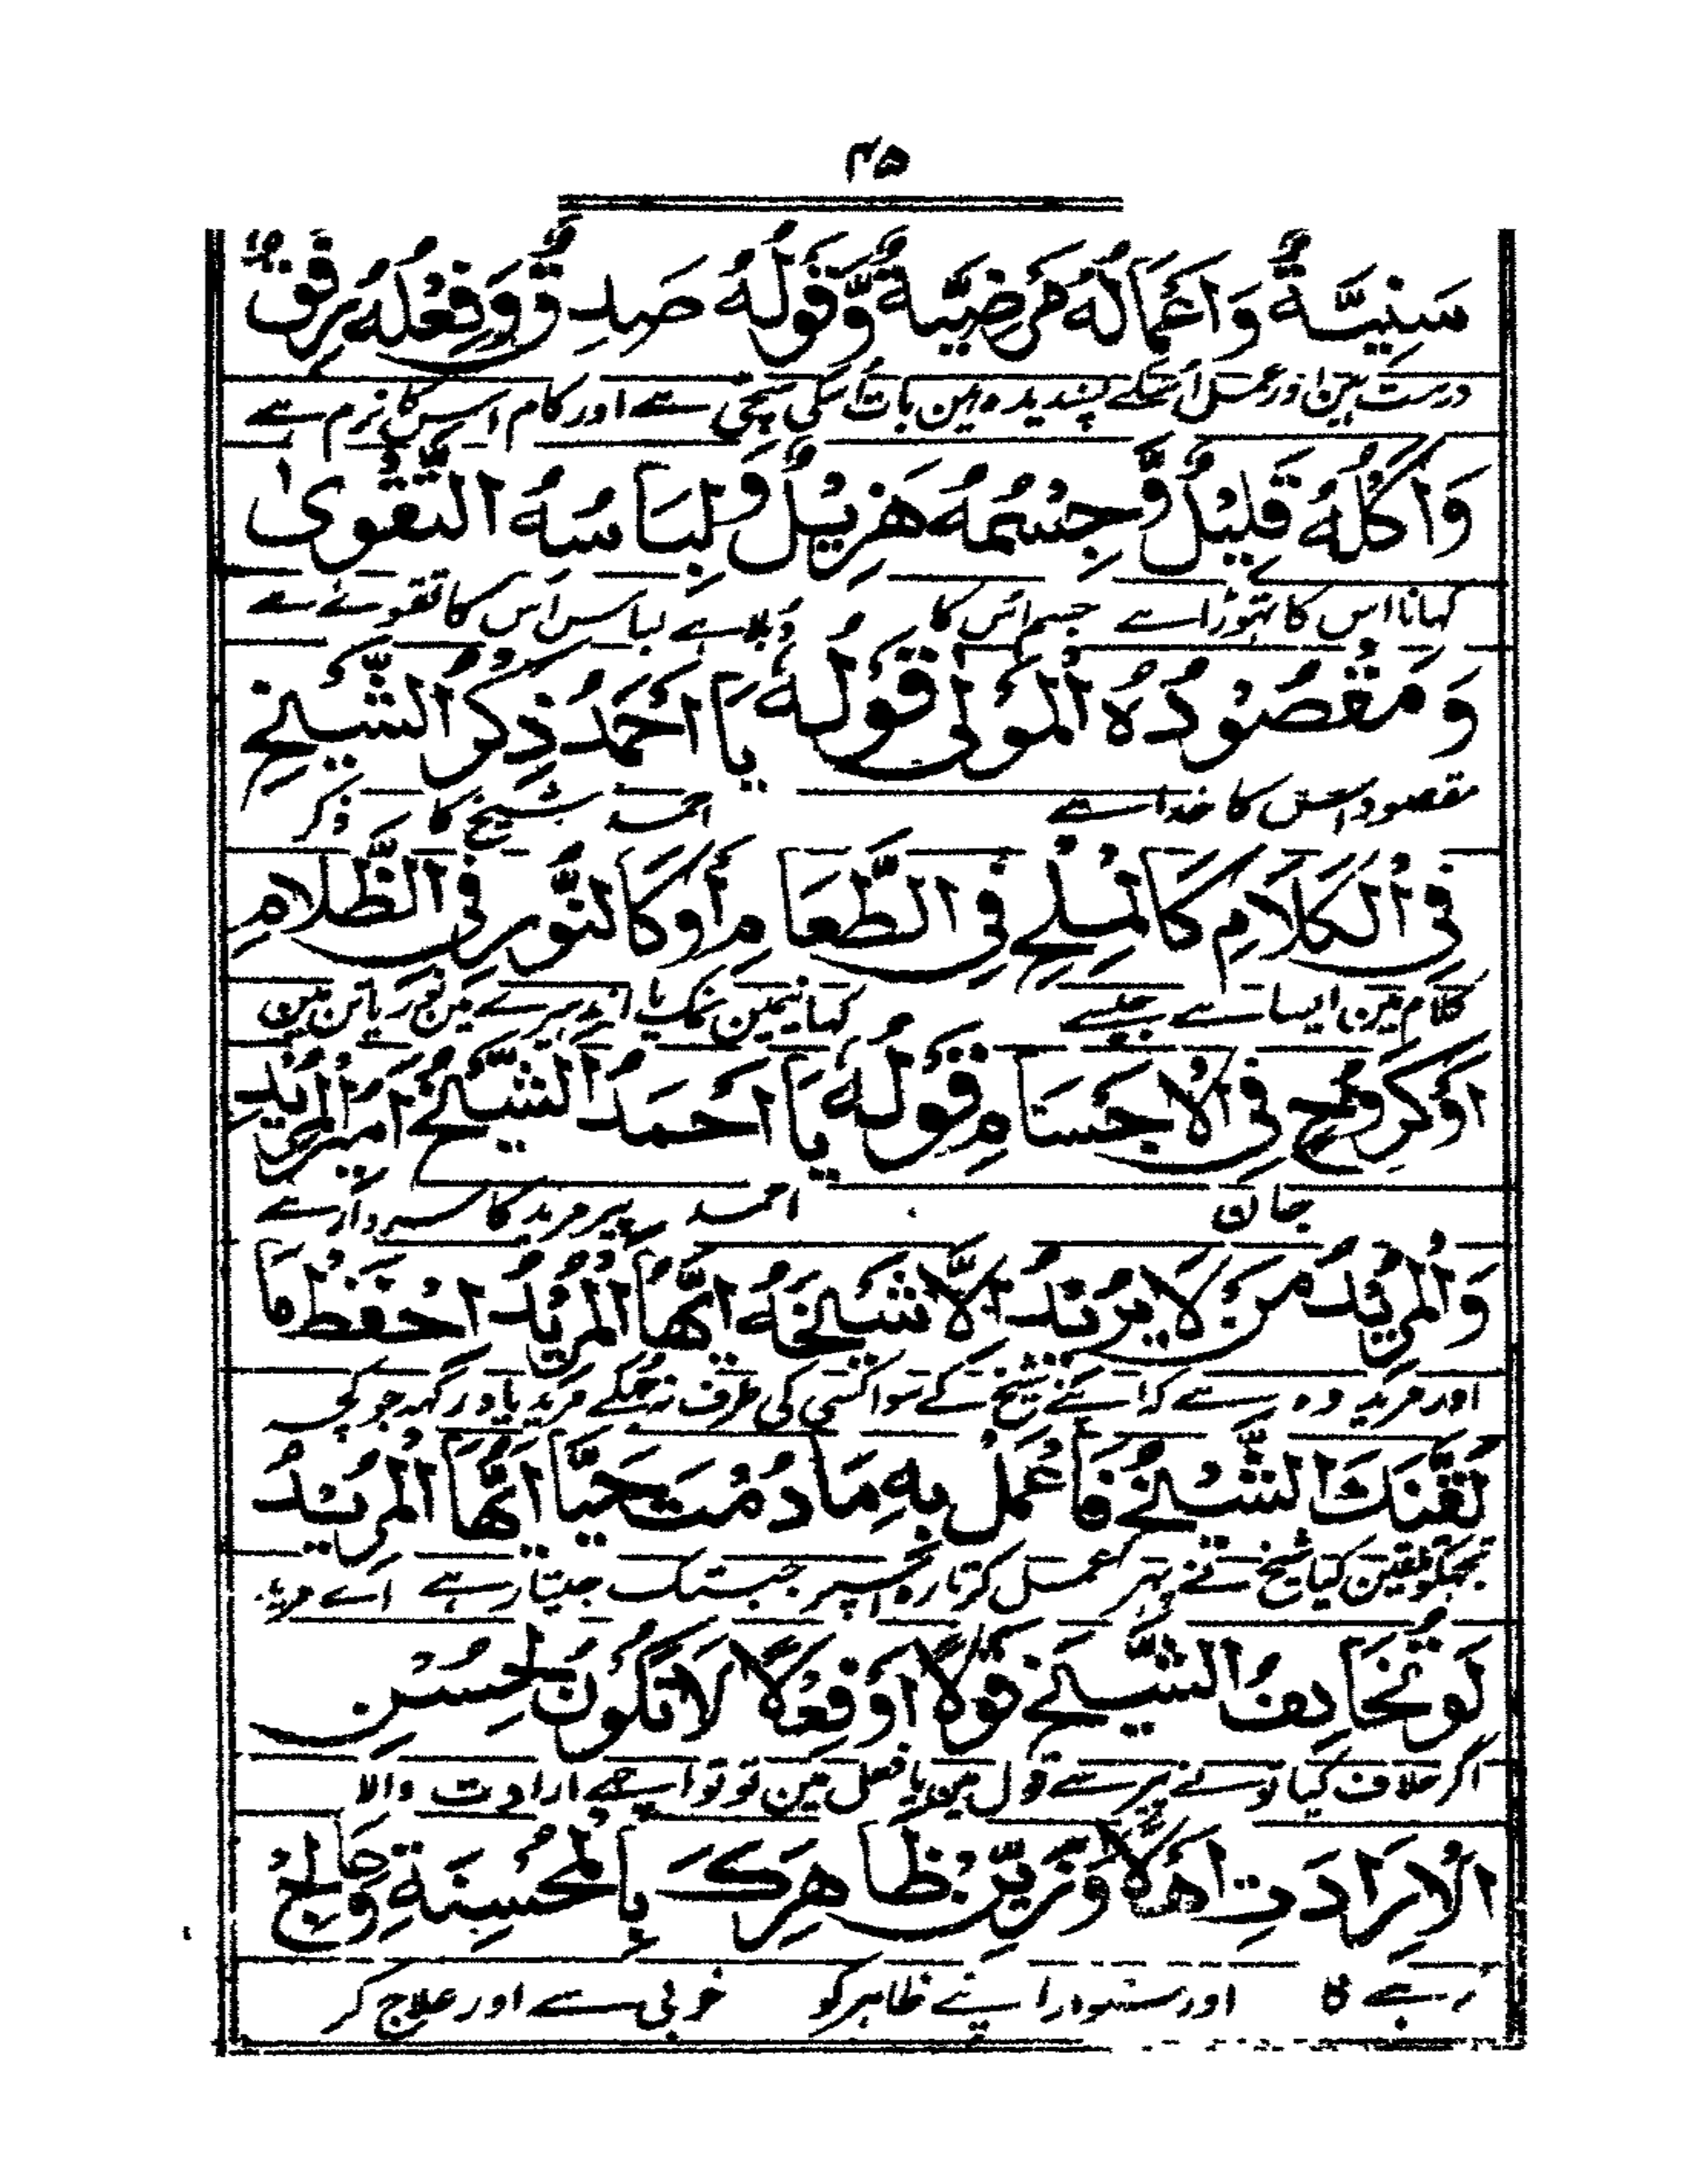 ۴۵
سَنِيَّةٌ وَاَعْمَالُهُ مَرْضِيَّةٌ وَّقَوْلُهُ صَدِقٌ وَفِعْلُهُ رِفْقٌ
درست ہین اور عمل اسکے پسندیدہ ہین بات اُسکی سچی ہے اور کام اس کا نرم ہے
وَاَكْلُهُ قَلِيْلٌ وَّجِسْمُهُ هَزِيْلٌ وَلِبَاسُهُ التَّقْوٰى
کہانا اس کا تہوڑا ہے جسم اس کا دُبلا ہے لباس اُس کا تقوے ہے
وَمَقْصُوْدُهُ الْمَوْلٰى قَوْلُهٗ يَا اَحْمَدُ ذِكْرُ الشَّيْخِ
مقصود اس کا خدا ہے احمد شیخ کا ذکر
فِي الْكَلَامِ كَالْمِلْحِ فِي الطَّعَامِ اَوْ كَالنُّوْرِ فِي الظَّلَامِ
کلام مین ایسا ہے جیسے کہانیمین نمک یا اندہیرے مین نور یا تن مین
اَوْ كَرُوْحٍ فِي الْاَجْسَامِ قَوْلُهٗ يَا اَحْمَدُ الشَّيْخُ اَمِيْرُ الْمُرِيْدِ
جان احمد پیر مرید کا سردار ہے
وَالْمُرِيْدُ مَنْ لَا يُرِيْدُ اِلَّا شَيْخَهُ اَيُّهَا الْمُرِيْدُ احْفَظْ مَا
اور مرید وہ ہے کہ اپنے شیخ کے سوا کسی کی طرف نہ جہکے مرید یاد رکہہ جو کچہہ
لَقَّنَكَ الشَّيْخُ فَاعْمَلْ بِهِ مَا دُمْتَ حَيًّا اَيُّهَا الْمُرِيْدُ
تجہکو تلقین کیا شیخ نے پہر عمل کرتا رہ اسپر جبتک جیتا رہے اے مرید
لَوْ تُخَالِفُ الشَّيْخَ قَوْلًا اَوْ فِعْلًا لَا تَكُوْنُ لِحُسْنِ
اگر خلاف کیا تو نے پیر سے قول مین یا فعل مین تو تو اچہے ارادت والا
الْاِرَادَتِ اَهْلًا وَزَيِّنْ ظَاهِرَكَ بِالْمُحْسِنَةِ وَعَالِجْ
رہے گا اور سنوار اپنے ظاہر کو خوبی سے اور علاج کر